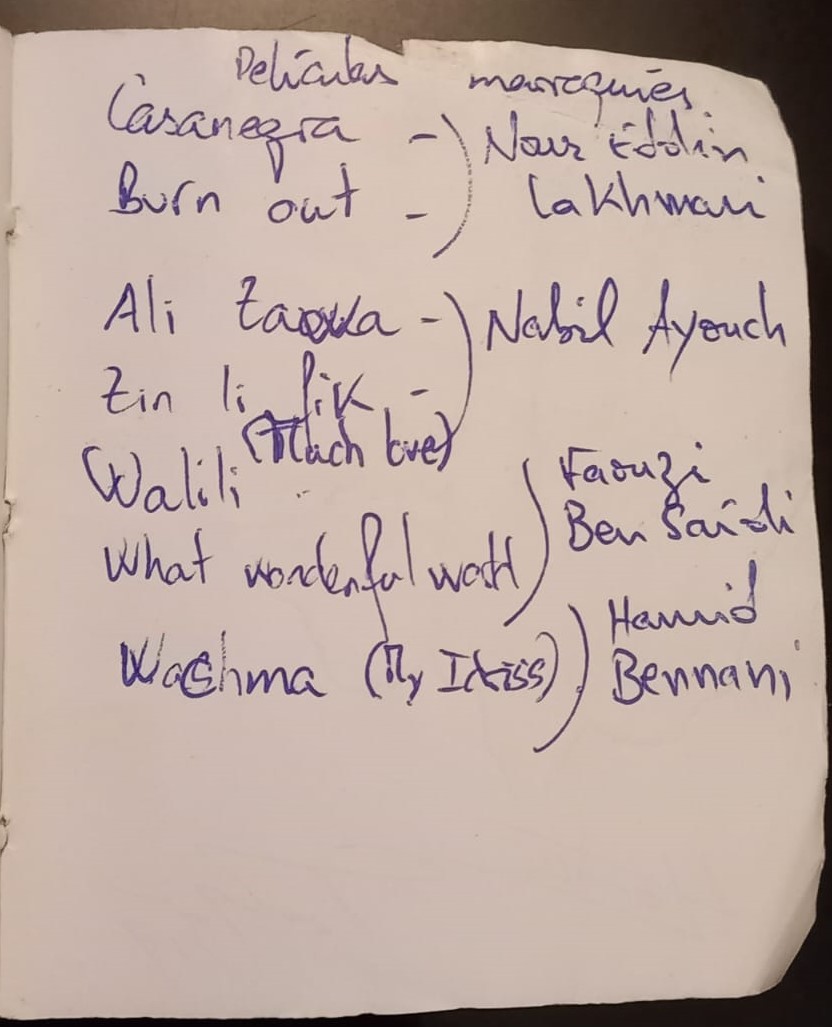 Películas marroquíes
Casanegra -) Nour Eddin
Burn out - Lakhmari
Ali Zaoua -) Nabil Ayouch
Zin li fik -
(Much love)
Walili
Faouzi
Ben Saïdi
What wonderful world
Hamid
Wechma (My Idriss) Bennani